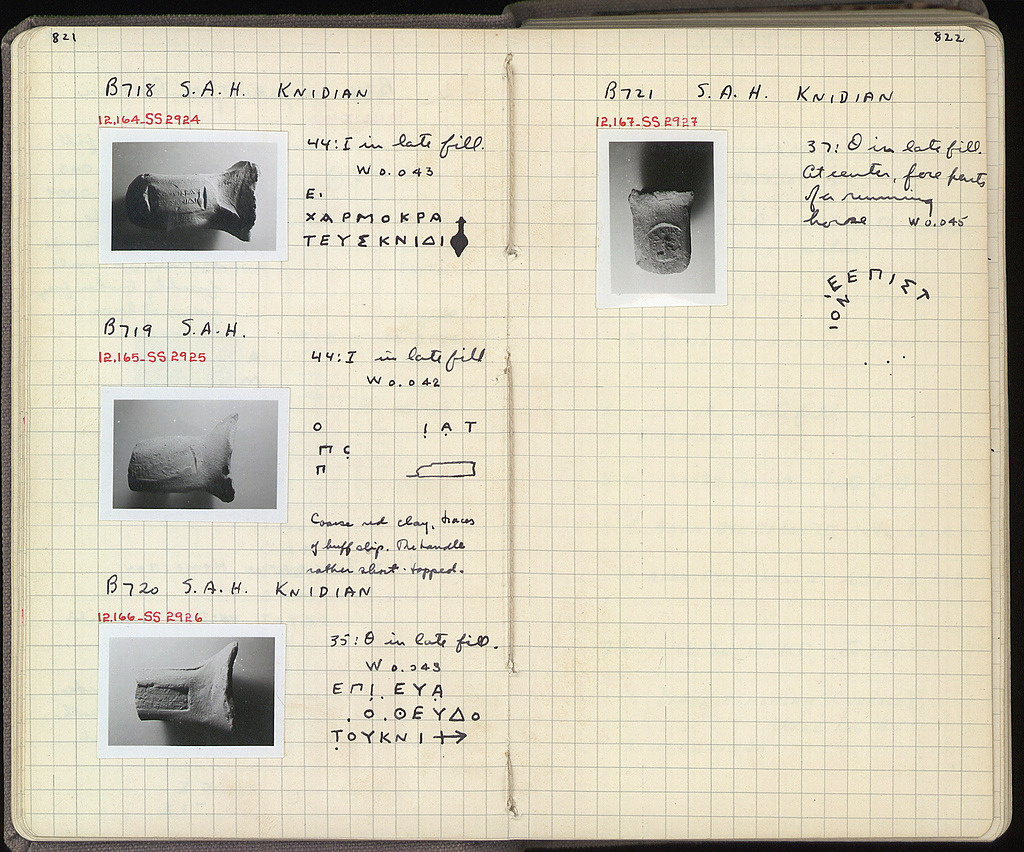 821
B718 S.A.H. KNIDIAN
12,164-SS 2924
44:I in late fill.
W 0.043
Ε.
ΧΑΡΜΟΚΡΑ
ΤΕΥΣΚΝΙΔΙ
B719 S.A.H.
12,165-SS 2925
44:I in late fill
W 0.042
Ο Ι̣Α̣Τ
ΠС̣
Π
Coarse red clay, traces
of buff slip. The handle
rather short-topped.
B720 S.A.H. KNIDIAN
12,166-SS 2926
35:Θ in late fill.
W 0.043
ΕΠΙ̣.ΕΥΑ̣
.Ο̣.ΘΕΥΔΟ
Τ̣ΟΥΚΝΙ
822
B721 S.A.H. KNIDIAN
12,167-SS 2927
37:Θ in late fill.
At center, fore parts
of a running
horse W 0.045
ΙΟΝΕΕΠΙΣΤ